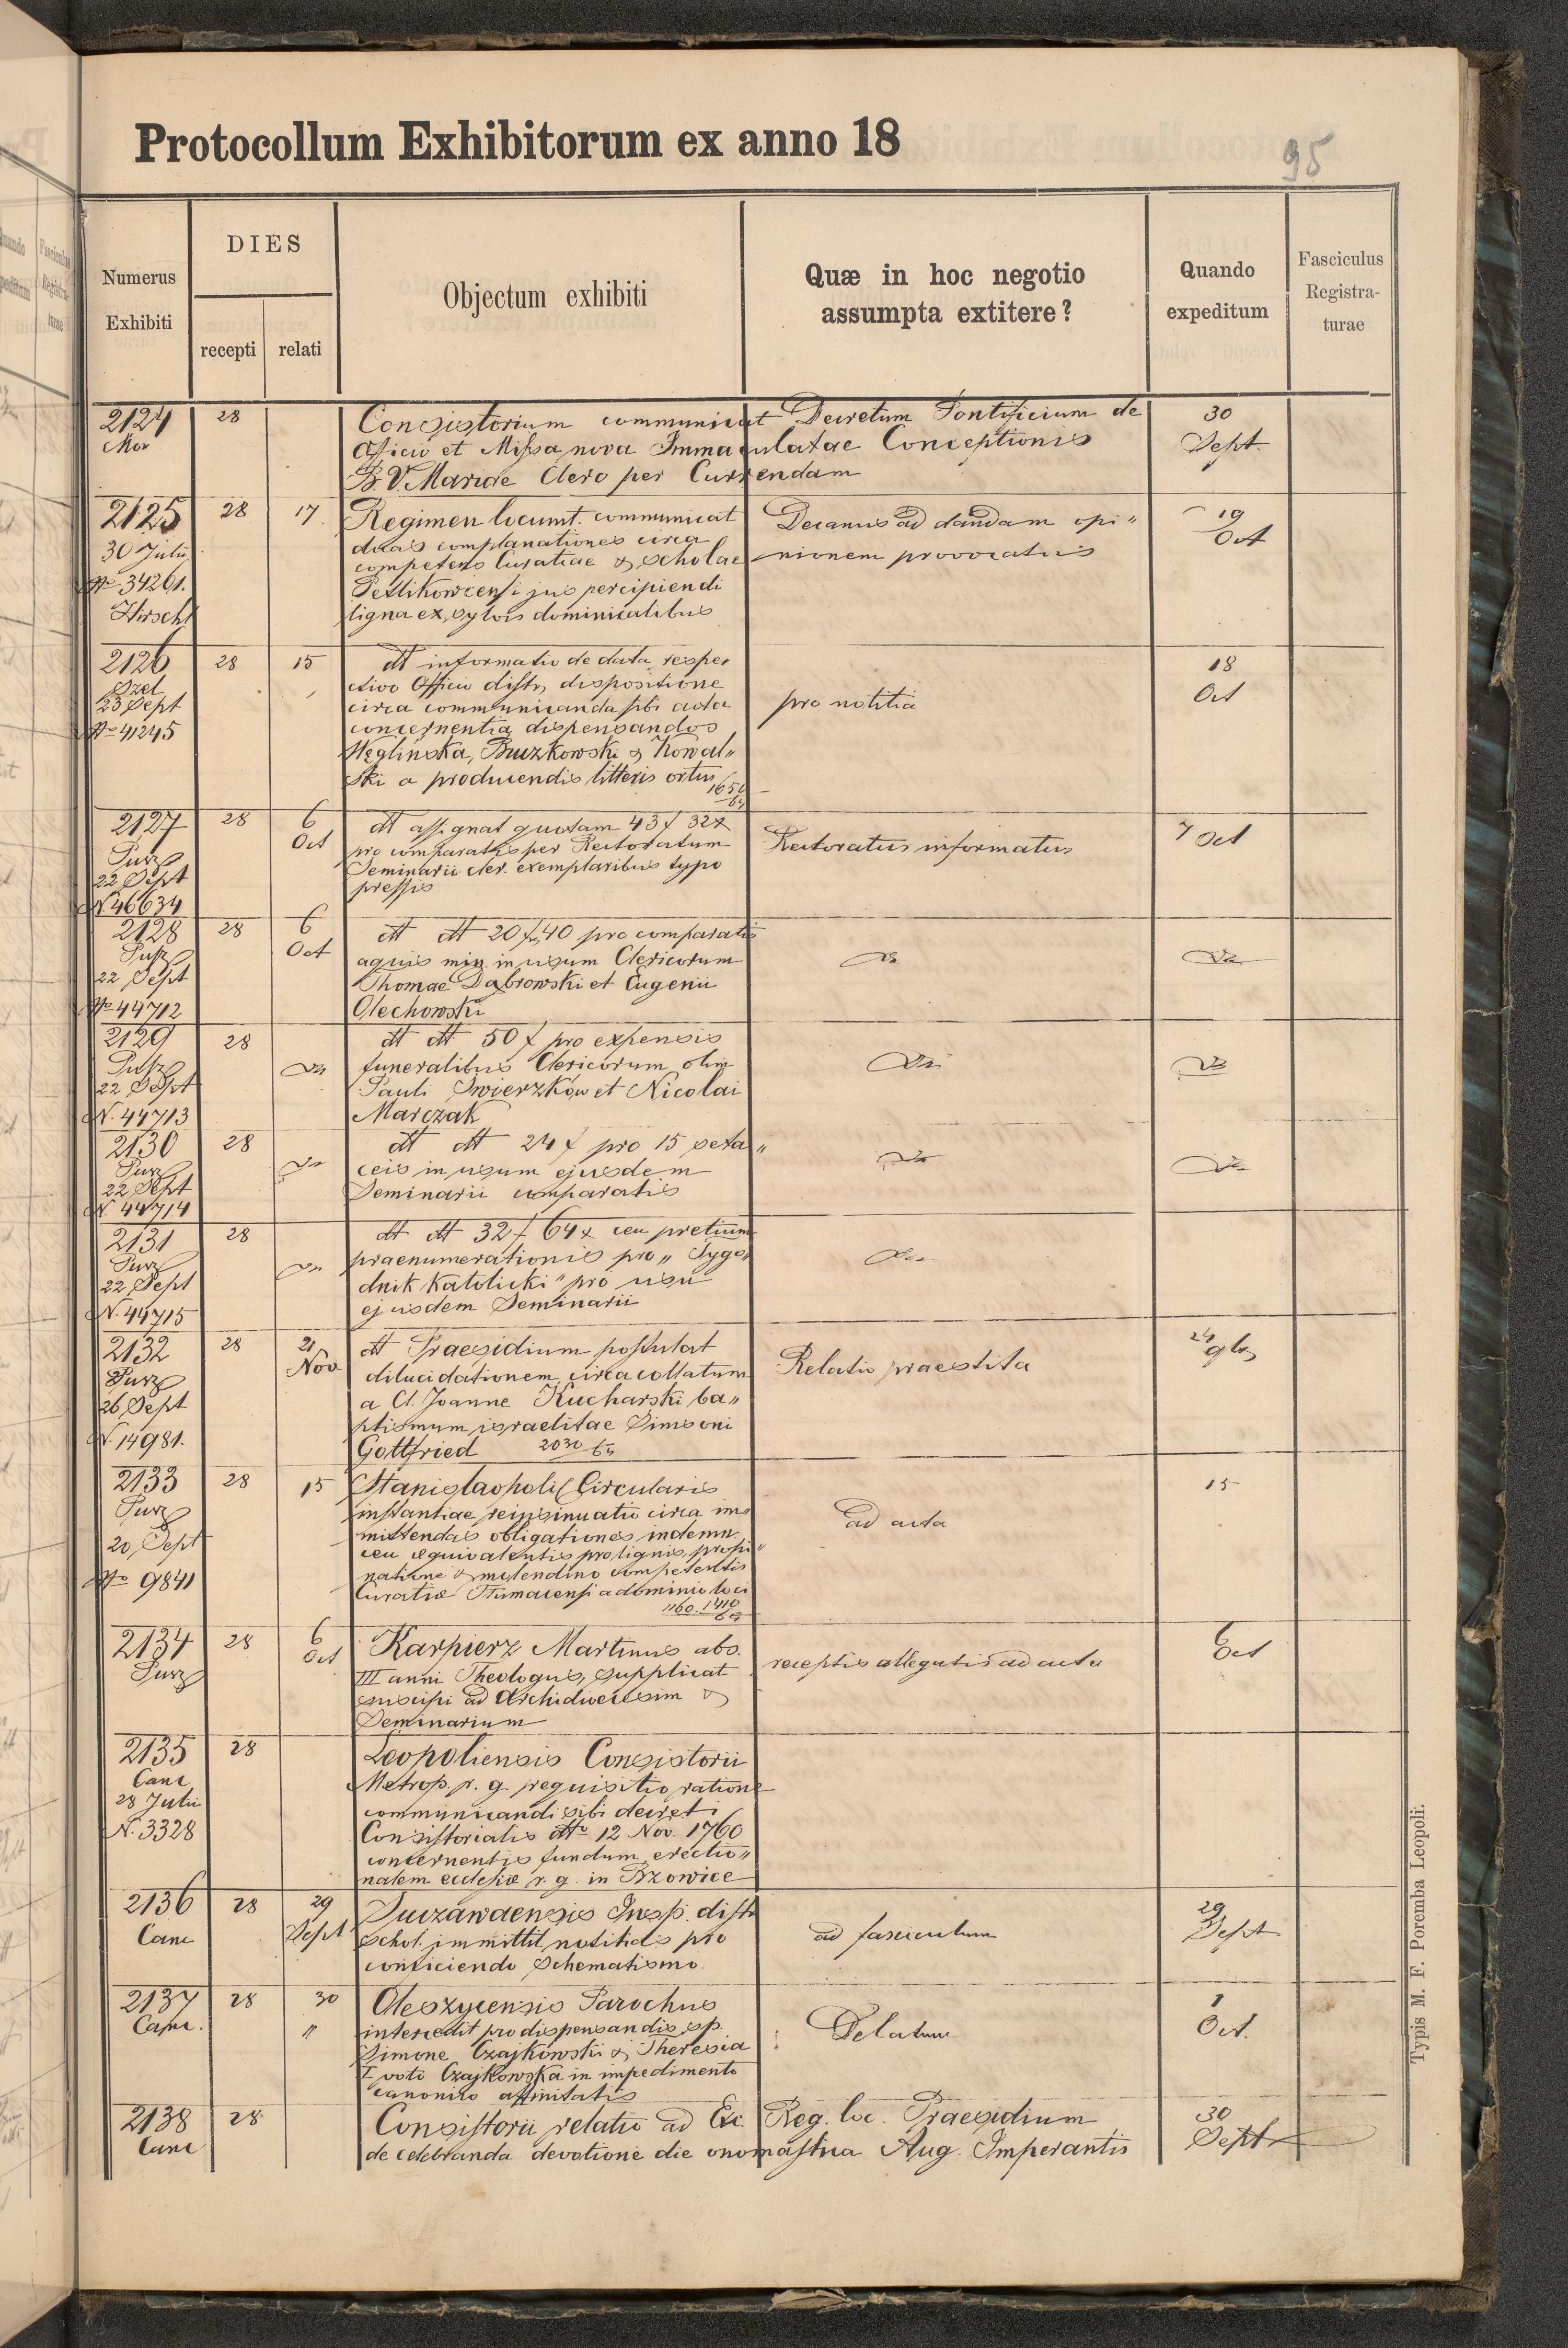 Protocollum Exhibitorum ex anno 18
95
Numerus Exhibiti
DIES
recepti
relati
Objectum exhibiti
Quæ in hoc negotio assumpta extitere?
Quando expeditum
Fasciculus Registra-turae
2124 28 Consistorium communicat Decretum Pontificium de 30
Officio et Missa nova Immaculatae Conceptionis Sept.
B. V. Mariae Clero per Currendam
2125 28 17 Regimen locumt. communicat Decanus ad dandam opi„ 19
30 Julii duas complanationes circa nionem provocatus Oct
No 34261. competens Curatiae & scholae
Hirschl Petlikowcensi jus percipiendi
ligna ex sylvis dominicalibus
2126 28 15 dt informatio de data respe
23 Sept ctivo Officio distr. dispositione pro notitia 18 Oct
No 41245 circa communicanda sibi acta
concernentia dispensandos
Węglińska, Buczkowski & Kowal„
ski a producendis litteris ortus
1650/65
2127 28 6 Oct dt assignat quotam 43 f 32 x Rectoratus informatus 7 Oct
Purz pro comparatis per Rectoratum
22 Sept Seminarii cler. exemplaribus typo
N 46634 pressis
2128 28 6 Oct dt dt 20 f 40 pro comparatis
22 Sept aquis min in usum Clericorum
No 44712 Thomae Dąbrowski et Eugenii
Olechowski
2129 28 dt dt 50 f pro expensis
22 Sept funeralibus Clericorum olim
N. 44713 Pauli Swierzków et Nicolai
Marczak
2130 28 dt dt 24 f pro 15 seta„
Purz ceis in usum ejusdem
22 Sept Seminarii comparatis
N. 44714
2131 28 dt dt 32 f 64 x ceu pretium
Purz praenumerationis pro „Tygo„
22 Sept dnik Katolicki" pro usu
N. 44715 ejusdem Seminarii
2132 28 21 Nov dt Praesidium postulat Relatio praestita 24 9br
Purz dilucidationem circa collatum
26 Sept a Cl. Joanne Kucharski ba„
N. 14981. ptismum israelitae Simsoni
Gottfried 2030/65
2133 28 15 Stanislaopoli Circularis ad acta 15
Purz instantiae reinsinuatio circa im
20 Sept mittendas obligationes indemn.
No 9841 ceu æquivalentis pro lignis, propi„
natione & molendino competentis
Curatiæ Tłumacensi a dominio loci
1160. 1410/65
2134 28 6 Oct Karpierz Martinus abs. receptis allegatis ad acta 6 Oct
Purz III anni Theologus, supplicat
suscipi ad Archidioecesim &
Seminarium
2135 28 Leopoliensis Consistorii
Canc Metrop. r. g. requisitio ratione
28 Julii communicandi sibi decreti
N. 3328 Consistorialis dto 12 Nov. 1760
concernentis fundum erectio„
nalem ecclesiæ r. g. in Bzowice
2136 28 29 Sept Suczawaensis Insp. distr ad fasciculum 29 Sept
Canc schol. immittit notitias pro
conficiendo Schematismo.
2137 28 30 Oleszycensis Parochus Delatum 1 Oct.
Canc. „ intercedit pro dispensandis sp.
Simone Czajkowski & Theresia
I voto Czajkowska in impedimento
canonico affinitatis
2138 28 Consistorii relatio ad Exc. Reg. loc. Praesidium 30
Canc de celebranda devotione die onomastica Aug. Imperantis Sept
Typis M. F. Poremba Leopoli.